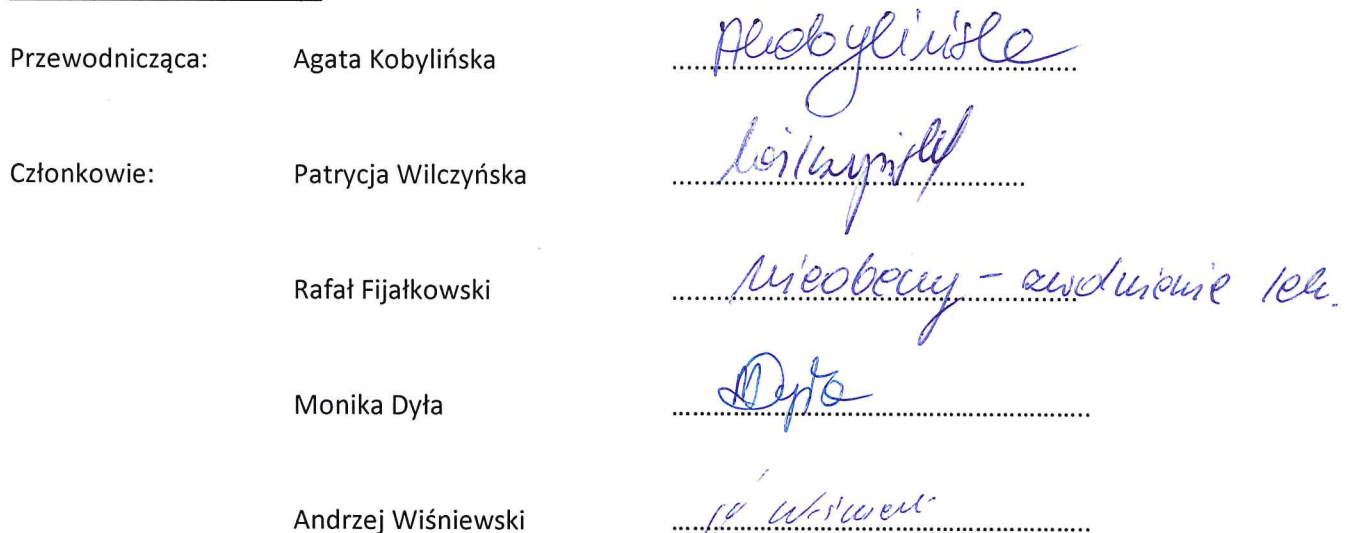 Przewodnicząca: Agata Kobylińska AKobylińska
Członkowie: Patrycja Wilczyńska Wilczyńska
Rafał Fijałkowski nieobecny - zwolnienie lek.
Monika Dyła MDyła
Andrzej Wiśniewski